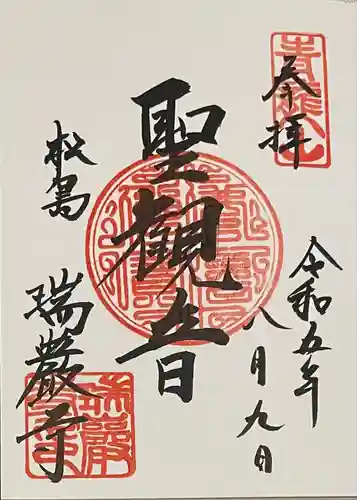 奉拝
令和五年
八月九日
聖観音
松島
瑞巖寺